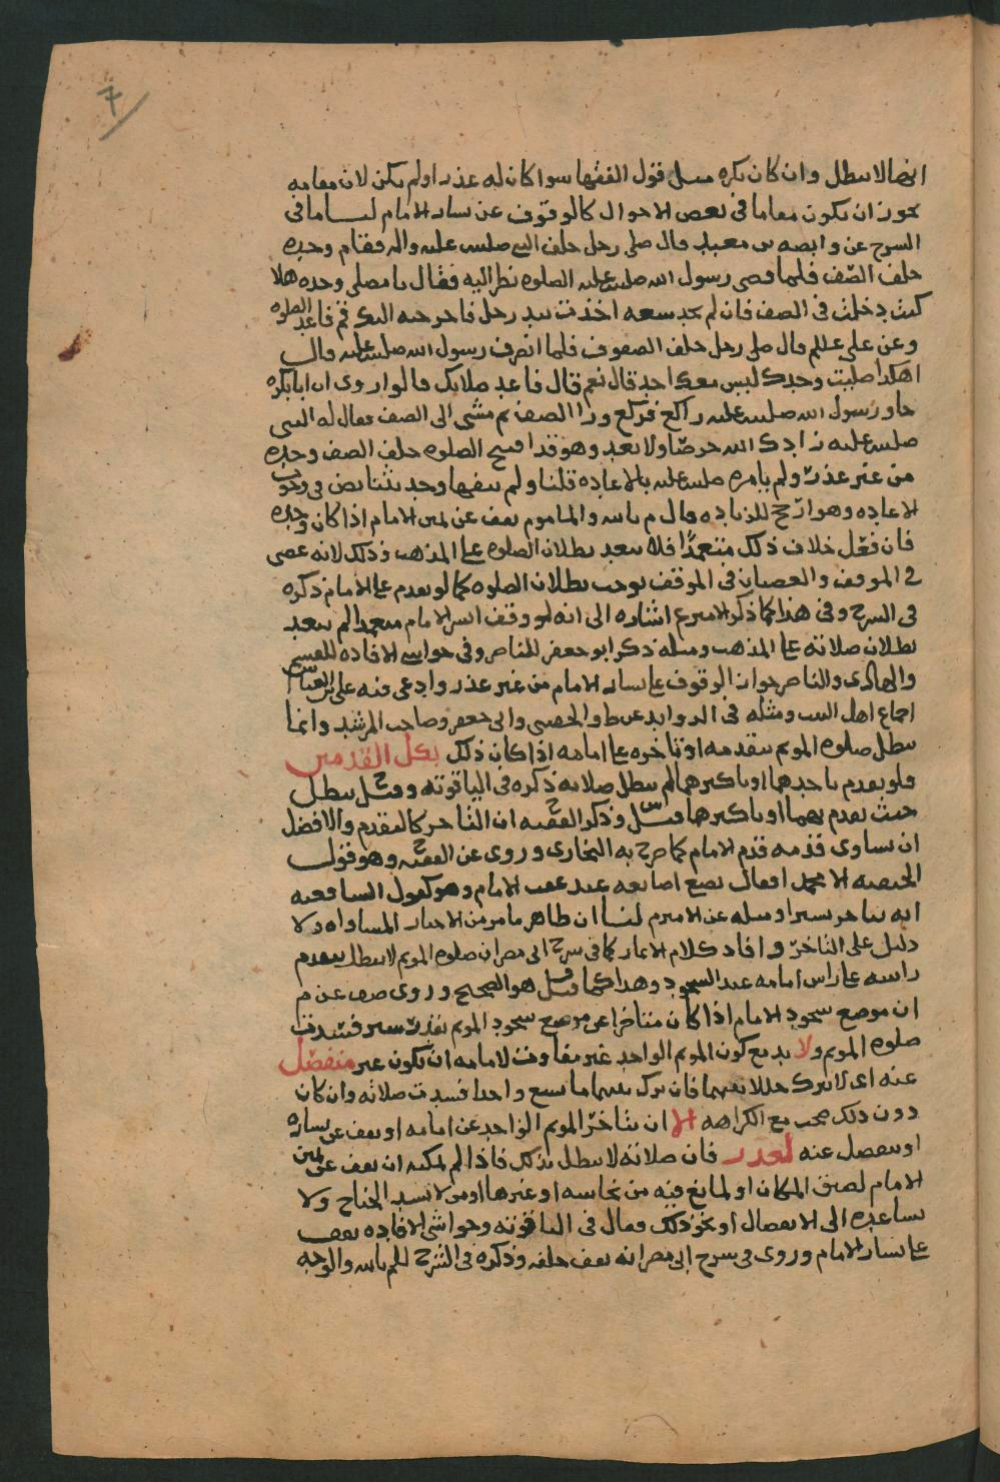 7
ايضا لا تبطل وان كان يكره مثل قول الفقها سوا كان له عذر او لم يكن لان مقامه
يجوز ان يكون مقاما في بعض الاحوال كالوقوف عن يسار الامام لنا ما في
الشرح عن وابصه بن معبد قال صلى رجل خلف النبي صلى الله عليه واله فقام وحده
خلف الصف فلما قضى رسول الله صلى الله عليه الصلوه نظر اليه فقال يا مصلى وحده هلا
كنت دخلت في الصف فان لم تجد سعه اخذت بيد رجل فاخرجته اليك قم فاعد الصلوه
وعن علي عليلم قال صلى رجل خلف الصفوف فلما انصرف رسول الله صلى الله عليه قال
اهكذا صليت وحدك ليس معك احد قال نعم قال فاعد صلاتك قالوا روى ان ابا بكره
جا ورسول الله صلى الله عليه راكع فركع ورا الصف ثم مشى الى الصف فقال له النبي
صلى الله عليه زادك الله حرصا ولا تعد وهو قد افتتح الصلوه خلف الصف وحده
من غير عذر ولم يامره صلى الله عليه بالاعاده قلنا ولم ينفها وحديثنا نص في وجوب
الاعاده وهو ارجح للزياده قال م بالله والماموم يقف عن يمين الامام اذا كان وحده
فان فعل خلاف ذلك متعمدًا فلا يبعد بطلان الصلوه على المذهب وذلك لانه عصى
في الموقف والعصيان في الموقف يوجب بطلان الصلوه كما لو تقدم على الامام ذكره
في الشرح وفي هذا كما ذكر الامير ع اشاره الى انه لو وقف ايسر الامام متعمدا لم يبعد
بطلان صلاته على المذهب ومثله ذكر ابو جعفر للناصر وفي حواشي الافاده للقسم
والهادى والناصر جواز الوقوف على يسار الامام من غير عذر وادعى فيه علي بن العباس
اجماع اهل البيت ومثله في الزوايد عن ط والحصى وابي جعفر وصاحب المرشد وانما
تبطل صلوه الموتم بتقدمه او تاخره على امامه اذا كان ذلك بكل القدمين
فلو تقدم باحدهما او باكثرهما لم تبطل صلاته ذكره في الياقوته وقيل تبطل
حيث تقدم بهما او باكثرهما وذكر الفقيه ان التاخر كالتقدم والافضل
ان يساوى قدمه قدم الامام كما صرح به البخارى وروى عن الفقيه وهو قول
الحنفيه الا محمد ا فقال يضع اصابعه عند عقب الامام وهو كقول الشافعيه
انه يتاخر يسيرا ومثله عن الامير م لنا ان ظاهر ما مر من الاخبار المساواه ولا
دليل على التاخر وافاد كلام الاثمار كما في شرح ابي مضر ان صلوه الموتم لا تبطل بتقدم
راسه على راس امامه عند السجود وهذا كما قيل هو الصحيح وروى ض عن م
ان موضع سجود الامام اذا كان متاخرا عن موضع سجود الموتم بقدر شبر فسدت
صلوه الموتم ولا بد مع كون الموتم الواحد غير مفاوت لامامه ان يكون غير منفصل
عنه اى لا يترك خللا بينهما فان ترك بينهما ما يسع واحدا فسدت صلاته وان كان
دون ذلك صحت مع الكراهه الا ان يتاخر الموتم الواحد عن امامه او يقف عن يساره
او ينفصل عنه لعذر فان صلاته لا تبطل بذلك فاذا لم يمكنه ان يقف عن يمين
الامام لضيق المكان او لمانع فيه من نجاسه او غيرها او من لا يسد الجناح ولا
يساعده الى الانفصال او نحو ذلك فقال في الياقوته وحواشي الافاده يقف
على يسار الامام وروى في شرح ابي مضر انه يقف خلفه وذكره في الشرح للم بالله والوجه